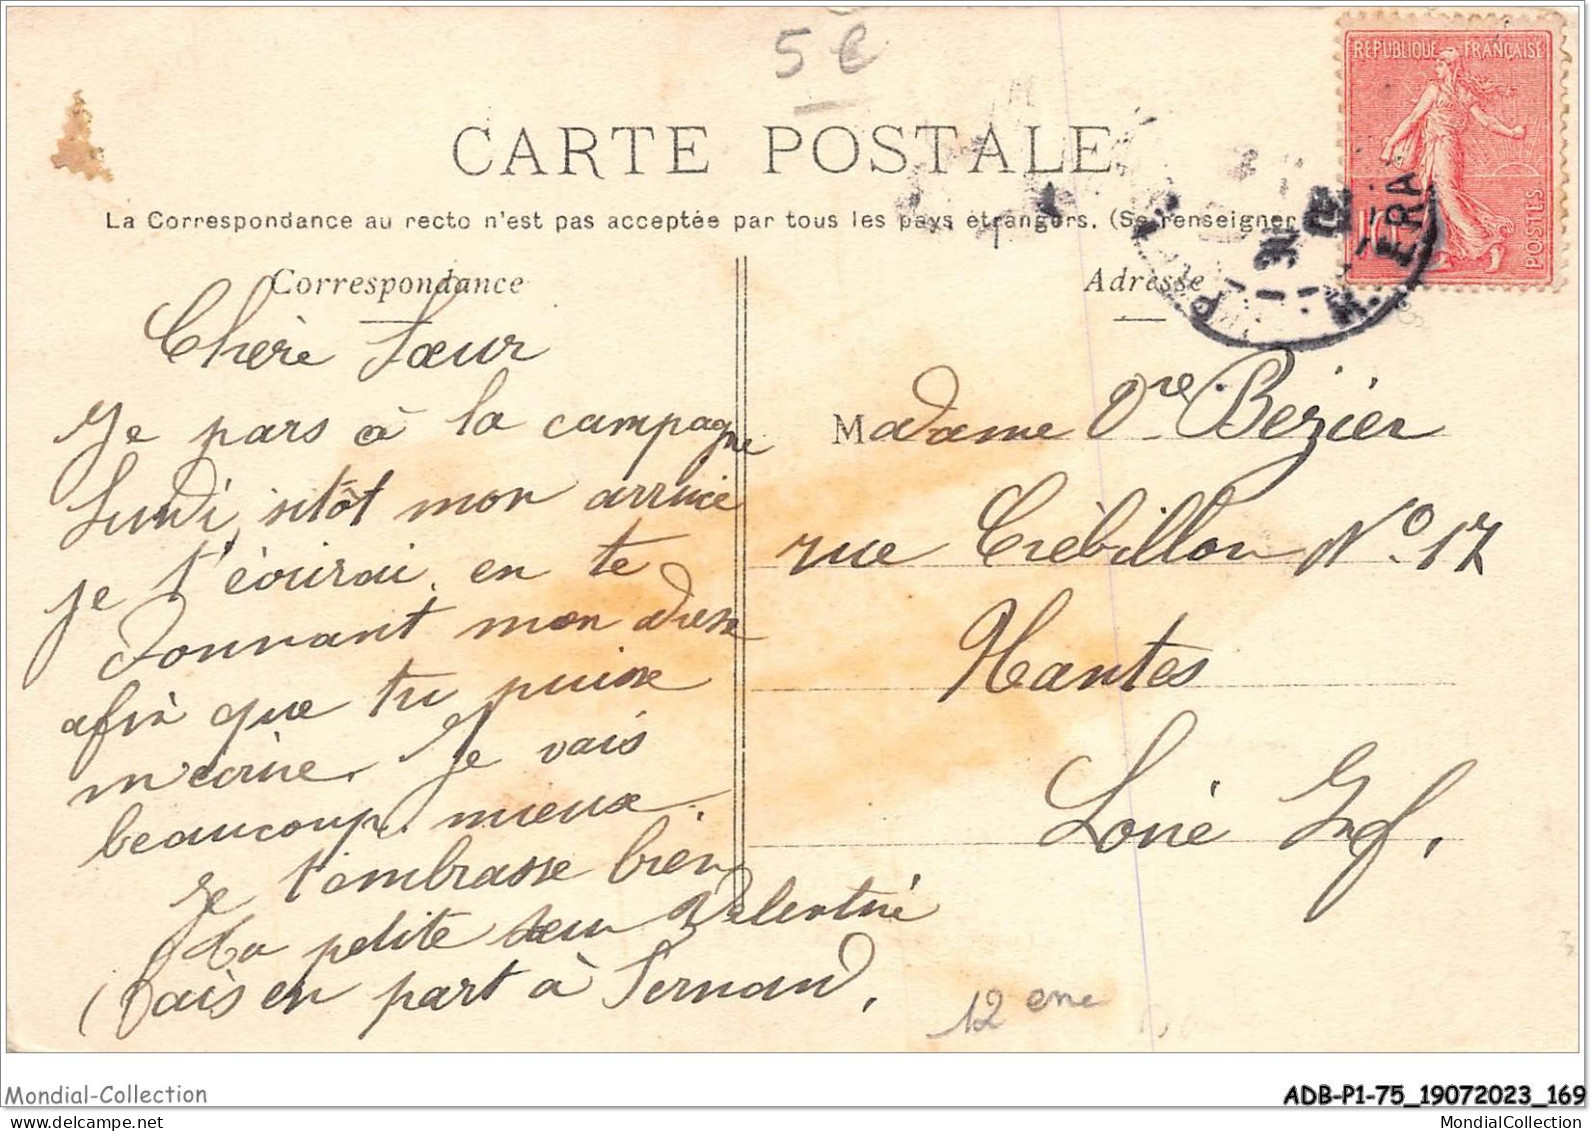 5 €
CARTE POSTALE
La Correspondance au recto n'est pas acceptée par tous les pays étrangers. (Se renseigner
REPUBLIQUE FRANÇAISE
10
POSTES
Correspondance
Adresse
Chère Sœur
Je pars à la campagne
Lundi, sitôt mon arrivée
je t'écrirai en te
donnant mon adresse
afin que tu puisse
m'écrire. Je vais
beaucoup mieux.
Je t'embrasse bien
ta petite sœur Valentine
(fais en part à Fernand,
Madame Vve Bézier
rue Crébillon No 17
Nantes
Loire Inf,
12 eme
Mondial-Collection
ADB-P1-75_19072023_169
MondialCollection